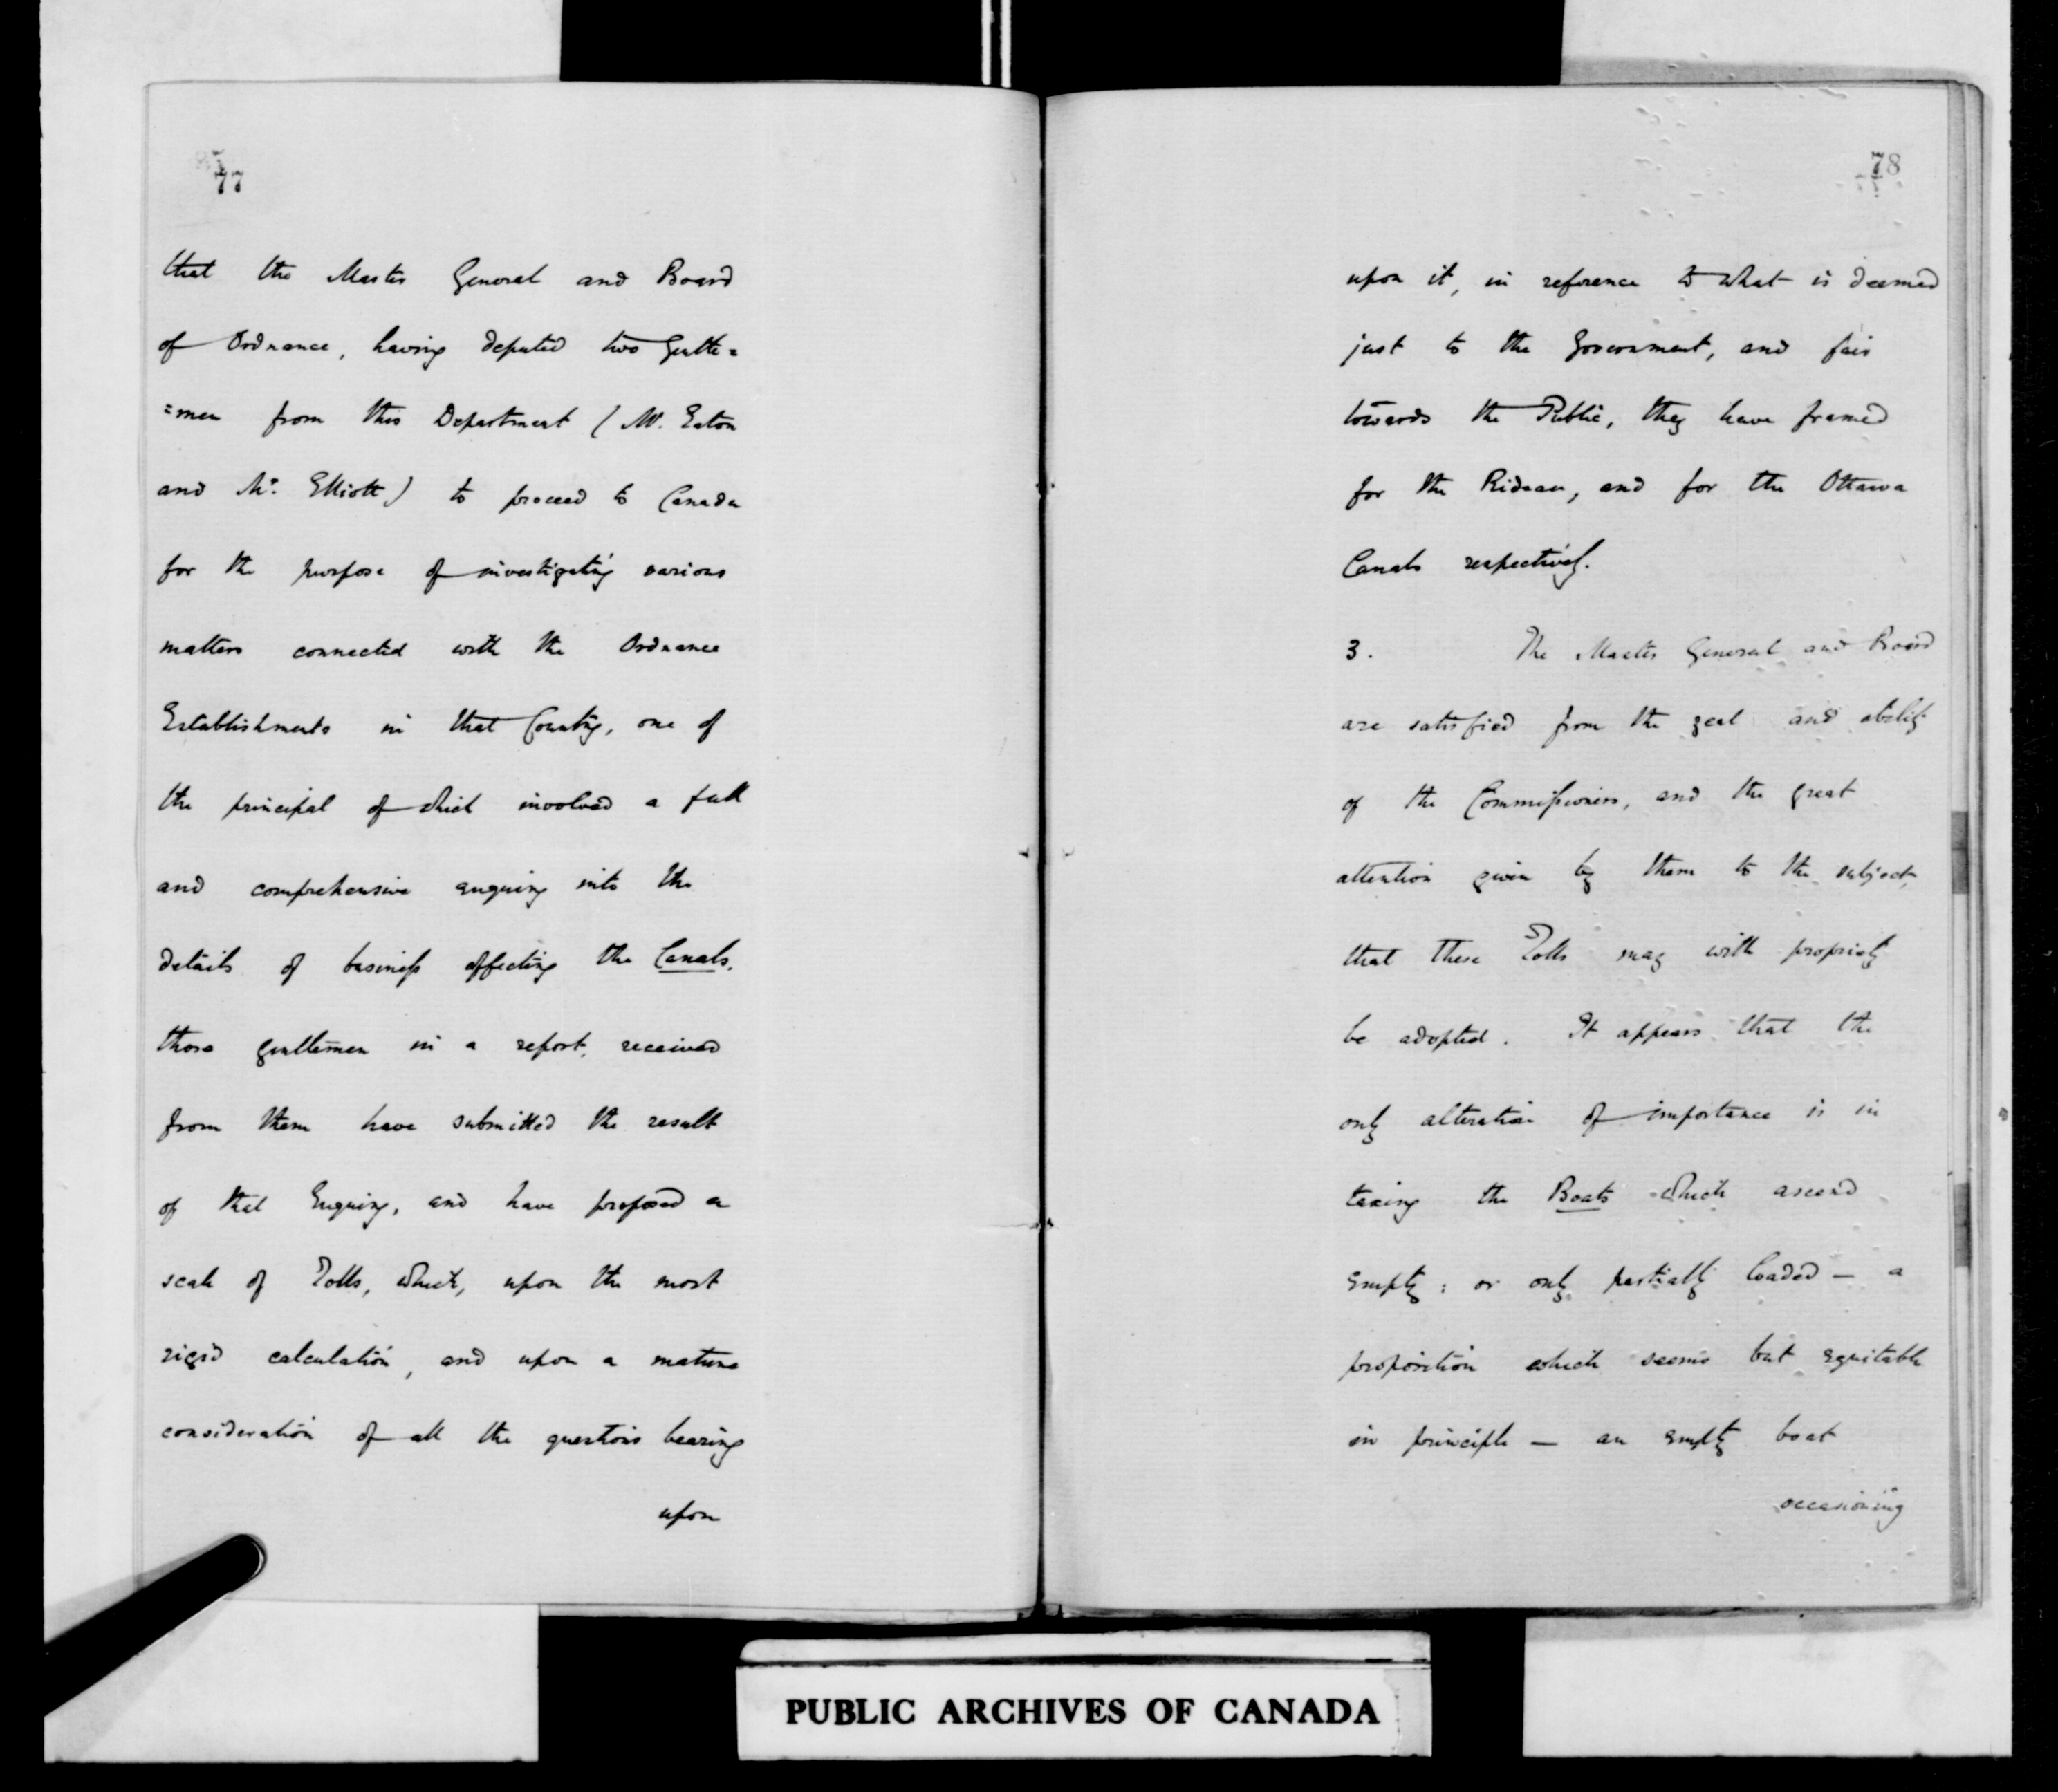 77
that the Master General and Board
of Ordnance, having deputed two Gentle=
=men from this Department (Mr. Eaton
and Mr. Elliott) to proceed to Canada
for the purpose of investigating various
matters connected with the Ordnance
Establishments in that Country, one of
the principal of which involved a full
and comprehensive enquiry into the
details of business affecting the Canals.
those gentlemen in a report, received
from them have submitted the result
of that Enquiry, and have proposed a
scale of Tolls, which, upon the most
rigid calculation, and upon a mature
consideration of all the questions bearing
upon
78
upon it, in reference to what is deemed
just to the Government, and fair
towards the Public, they have framed
for the Rideau, and for the Ottawa
Canals respectively.
3. The Master General and Board
are satisfied from the zeal and ability
of the Commissioners, and the great
attention given by them to the subject,
that these Tolls may with propriety
be adopted. It appears that the
only alteration of importance is in
taxing the Boats which ascend
empty; or only partially loaded — a
proposition which seems but equitable
in principle — an empty boat
occasioning
PUBLIC ARCHIVES OF CANADA